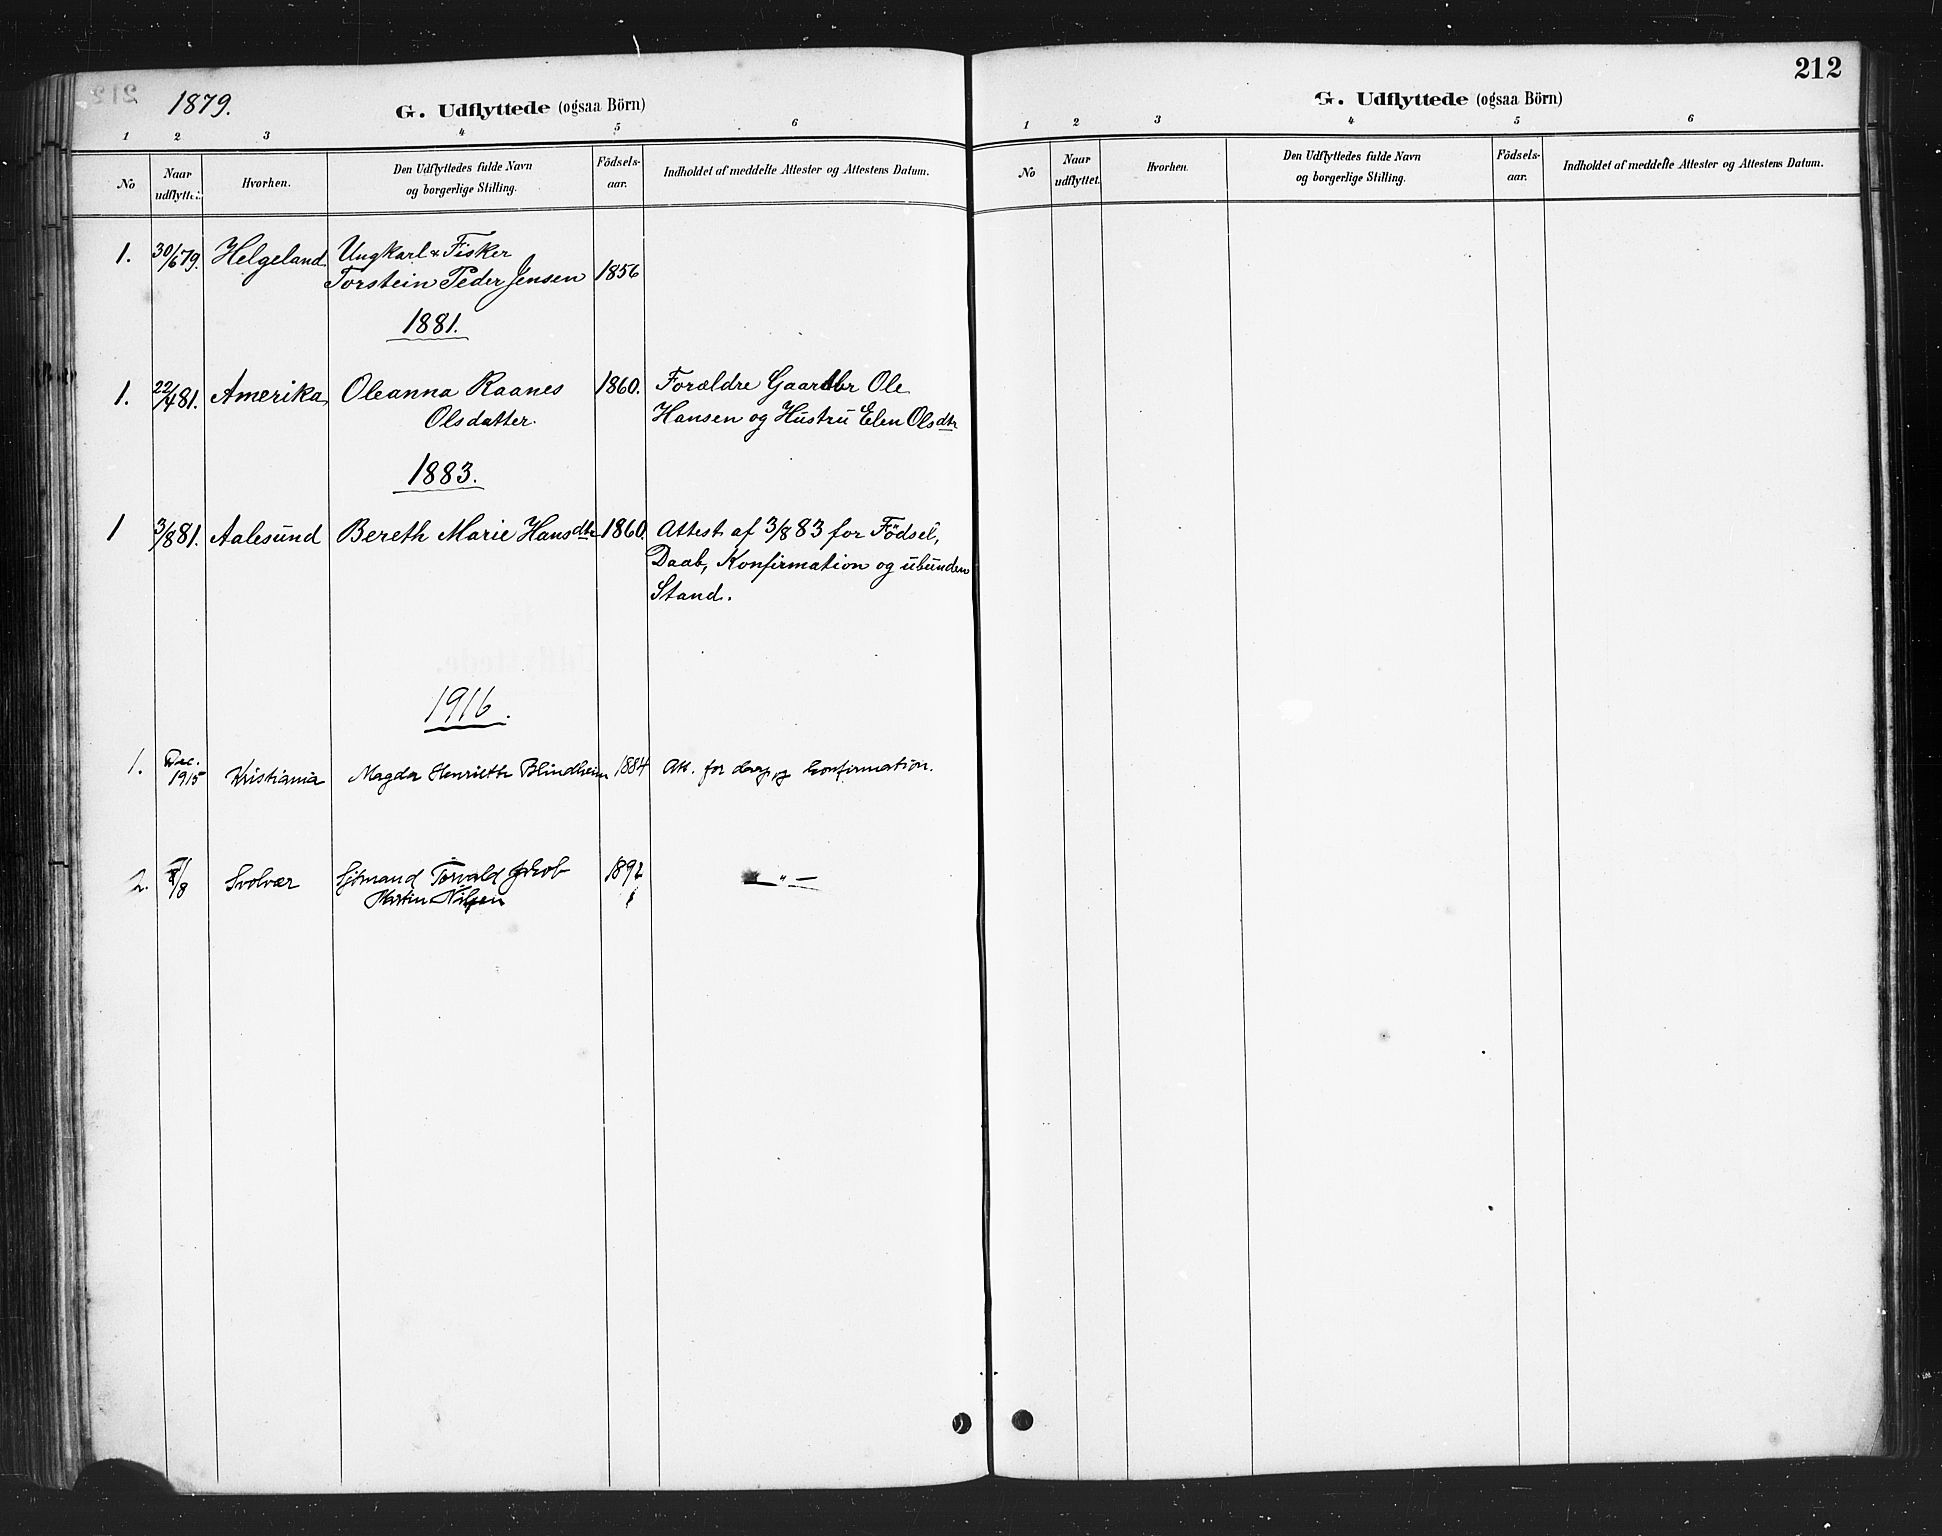 1879.
G. Udflyttede (ogsaa Börn)
1 2 3 4 5 6
No
Naar udflyttet.
Hvorhen.
Den Udflyttedes fulde Navn
og borgerlige Stilling.
Födsels-
aar.
Indholdet af meddelte Attester og Attestens Datum.
1. 30/6 79. Helgeland Ungkarl & Fisker
Torstein Peder Jensen 1856
1881.
1. 22/4 81. Amerika Oleanna Raanes 1860. Forældre Gaardbr Ole
Olsdatter. Hansen og Hustru Elen Olsdtr
1883.
1 3/8 81. Aalesund Bereth Marie Hansdtr 1860. Attest af 3/8 83 for Födsel,
Daab, Konfirmation og ubunden
Stand.
1916.
1. Dec. Kristiania Magda Henriette Blindheim 1884 Att. for daap og konfirmation.
1915
2. /8 Svolvær Sjömand Torvald Jakob 1892 — " —
Martin Nilsen
212
G. Udflyttede (ogsaa Börn)
1 2 3 4 5 6
No
Naar
udflyttet.
Hvorhen.
Den Udflyttedes fulde Navn
og borgerlige Stilling.
Födsels-
aar.
Indholdet af meddelte Attester og Attestens Datum.